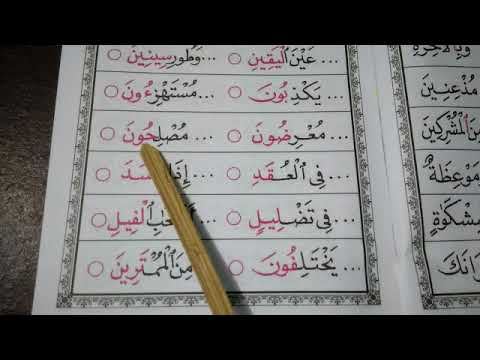 ... عَيْنَ ٱلْيَقِينِ ○ ... وَطُورِ سِينِينَ ○
... يَكْذِبُونَ ○ ... مُسْتَهْزِءُونَ ○
... مُعْرِضُونَ ○ ... مُصْلِحُونَ ○
... فِى ٱلْعُقَدِ ○ ... إِذَا حَسَدَ ○
... فِى تَضْلِيلٍ ○ ٱلْفِيلِ ○
... يَخْتَلِفُونَ ○ مِنَ ٱلْمُمْتَرِينَ ○
وَبِٱلْأَخِرَةِ
مُذْعِنِينَ
مِنَ ٱلْمُشْرِكِينَ
مَوْعِظَةٌ
مِشْكَوٰةٍ